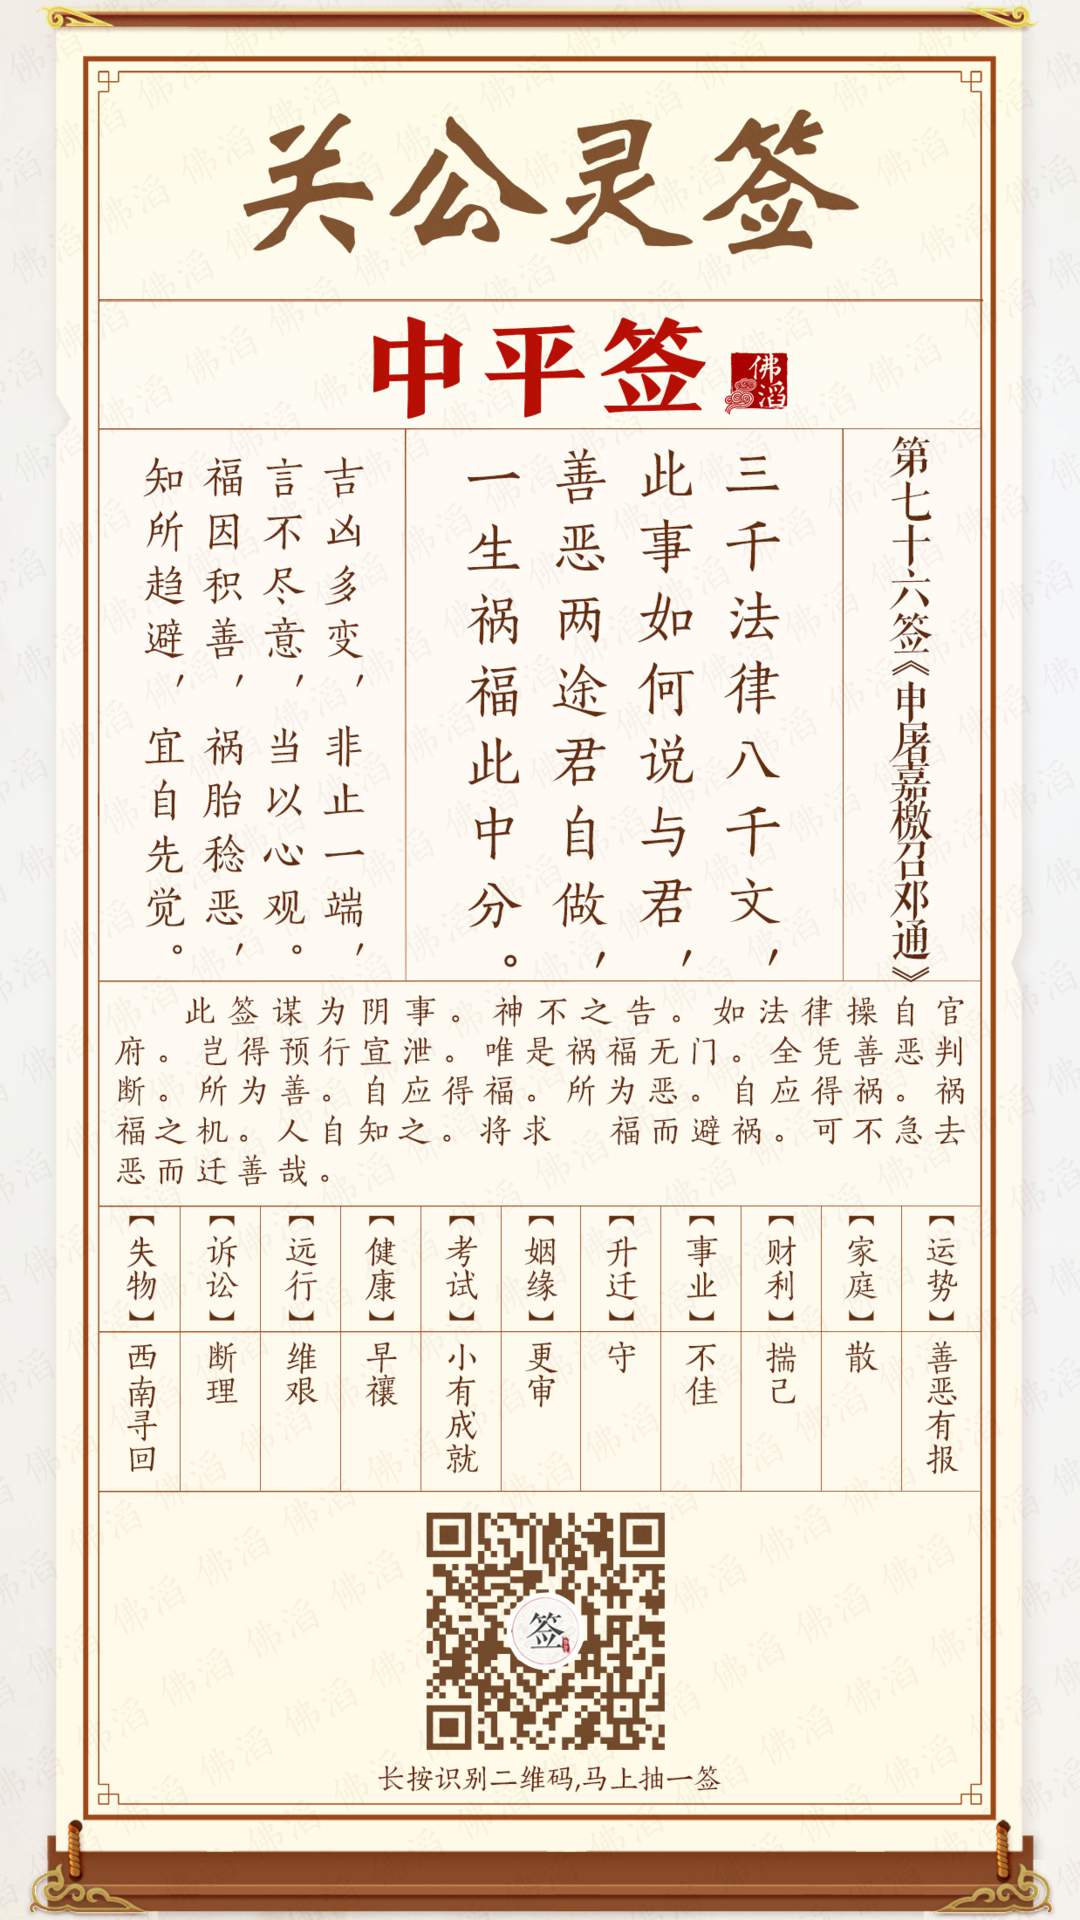 关公灵签
中平签
佛滔
第七十六签《申屠嘉檄召邓通》
三千法律八千文，
此事如何说与君，
善恶两途君自做，
一生祸福此中分。
吉凶多变，非止一端，
言不尽意，当以心观。
福因积善，祸胎稔恶，
知所趋避，宜自先觉。
此签谋为阴事。神不之告。如法律操自官
府。岂得预行宣泄。唯是祸福无门。全凭善恶判
断。所为善。自应得福。所为恶。自应得祸。祸
福之机。人自知之。将求　福而避祸。可不急去
恶而迁善哉。
【运势】
善恶有报
【家庭】
散
【财利】
揣己
【事业】
不佳
【升迁】
守
【姻缘】
更审
【考试】
小有成就
【健康】
早禳
【远行】
维艰
【诉讼】
断理
【失物】
西南寻回
签
长按识别二维码,马上抽一签